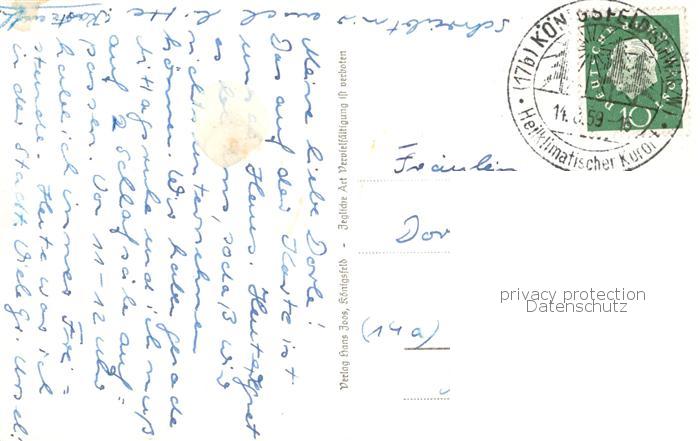 Meine liebe Dorle!
Das auf der Karte ist
unser Haus. Heute regnet
es bei uns, sodaß wir
nichts unternehmen
können. Wir haben gerade
Mittagsruhe und ich muß
auf 2 Schlafsäle auf=
passen. Von 11-12 Uhr
habe ich immer Frei=
stunde. Heute war ich
in der Stadt. Viele gr. Ursel.
Schreibt mir
auch
Karte
Verlag Hans Joos, Königsfeld - Jegliche Art Vervielfältigung ist verboten
(17b) KÖNIGSFELD (SCHWARZW)
14.8.59
Heilklimatischer Kurort
DEUTSCHE
10
Fräulein
Dor
(14a)
privacy protection
Datenschutz